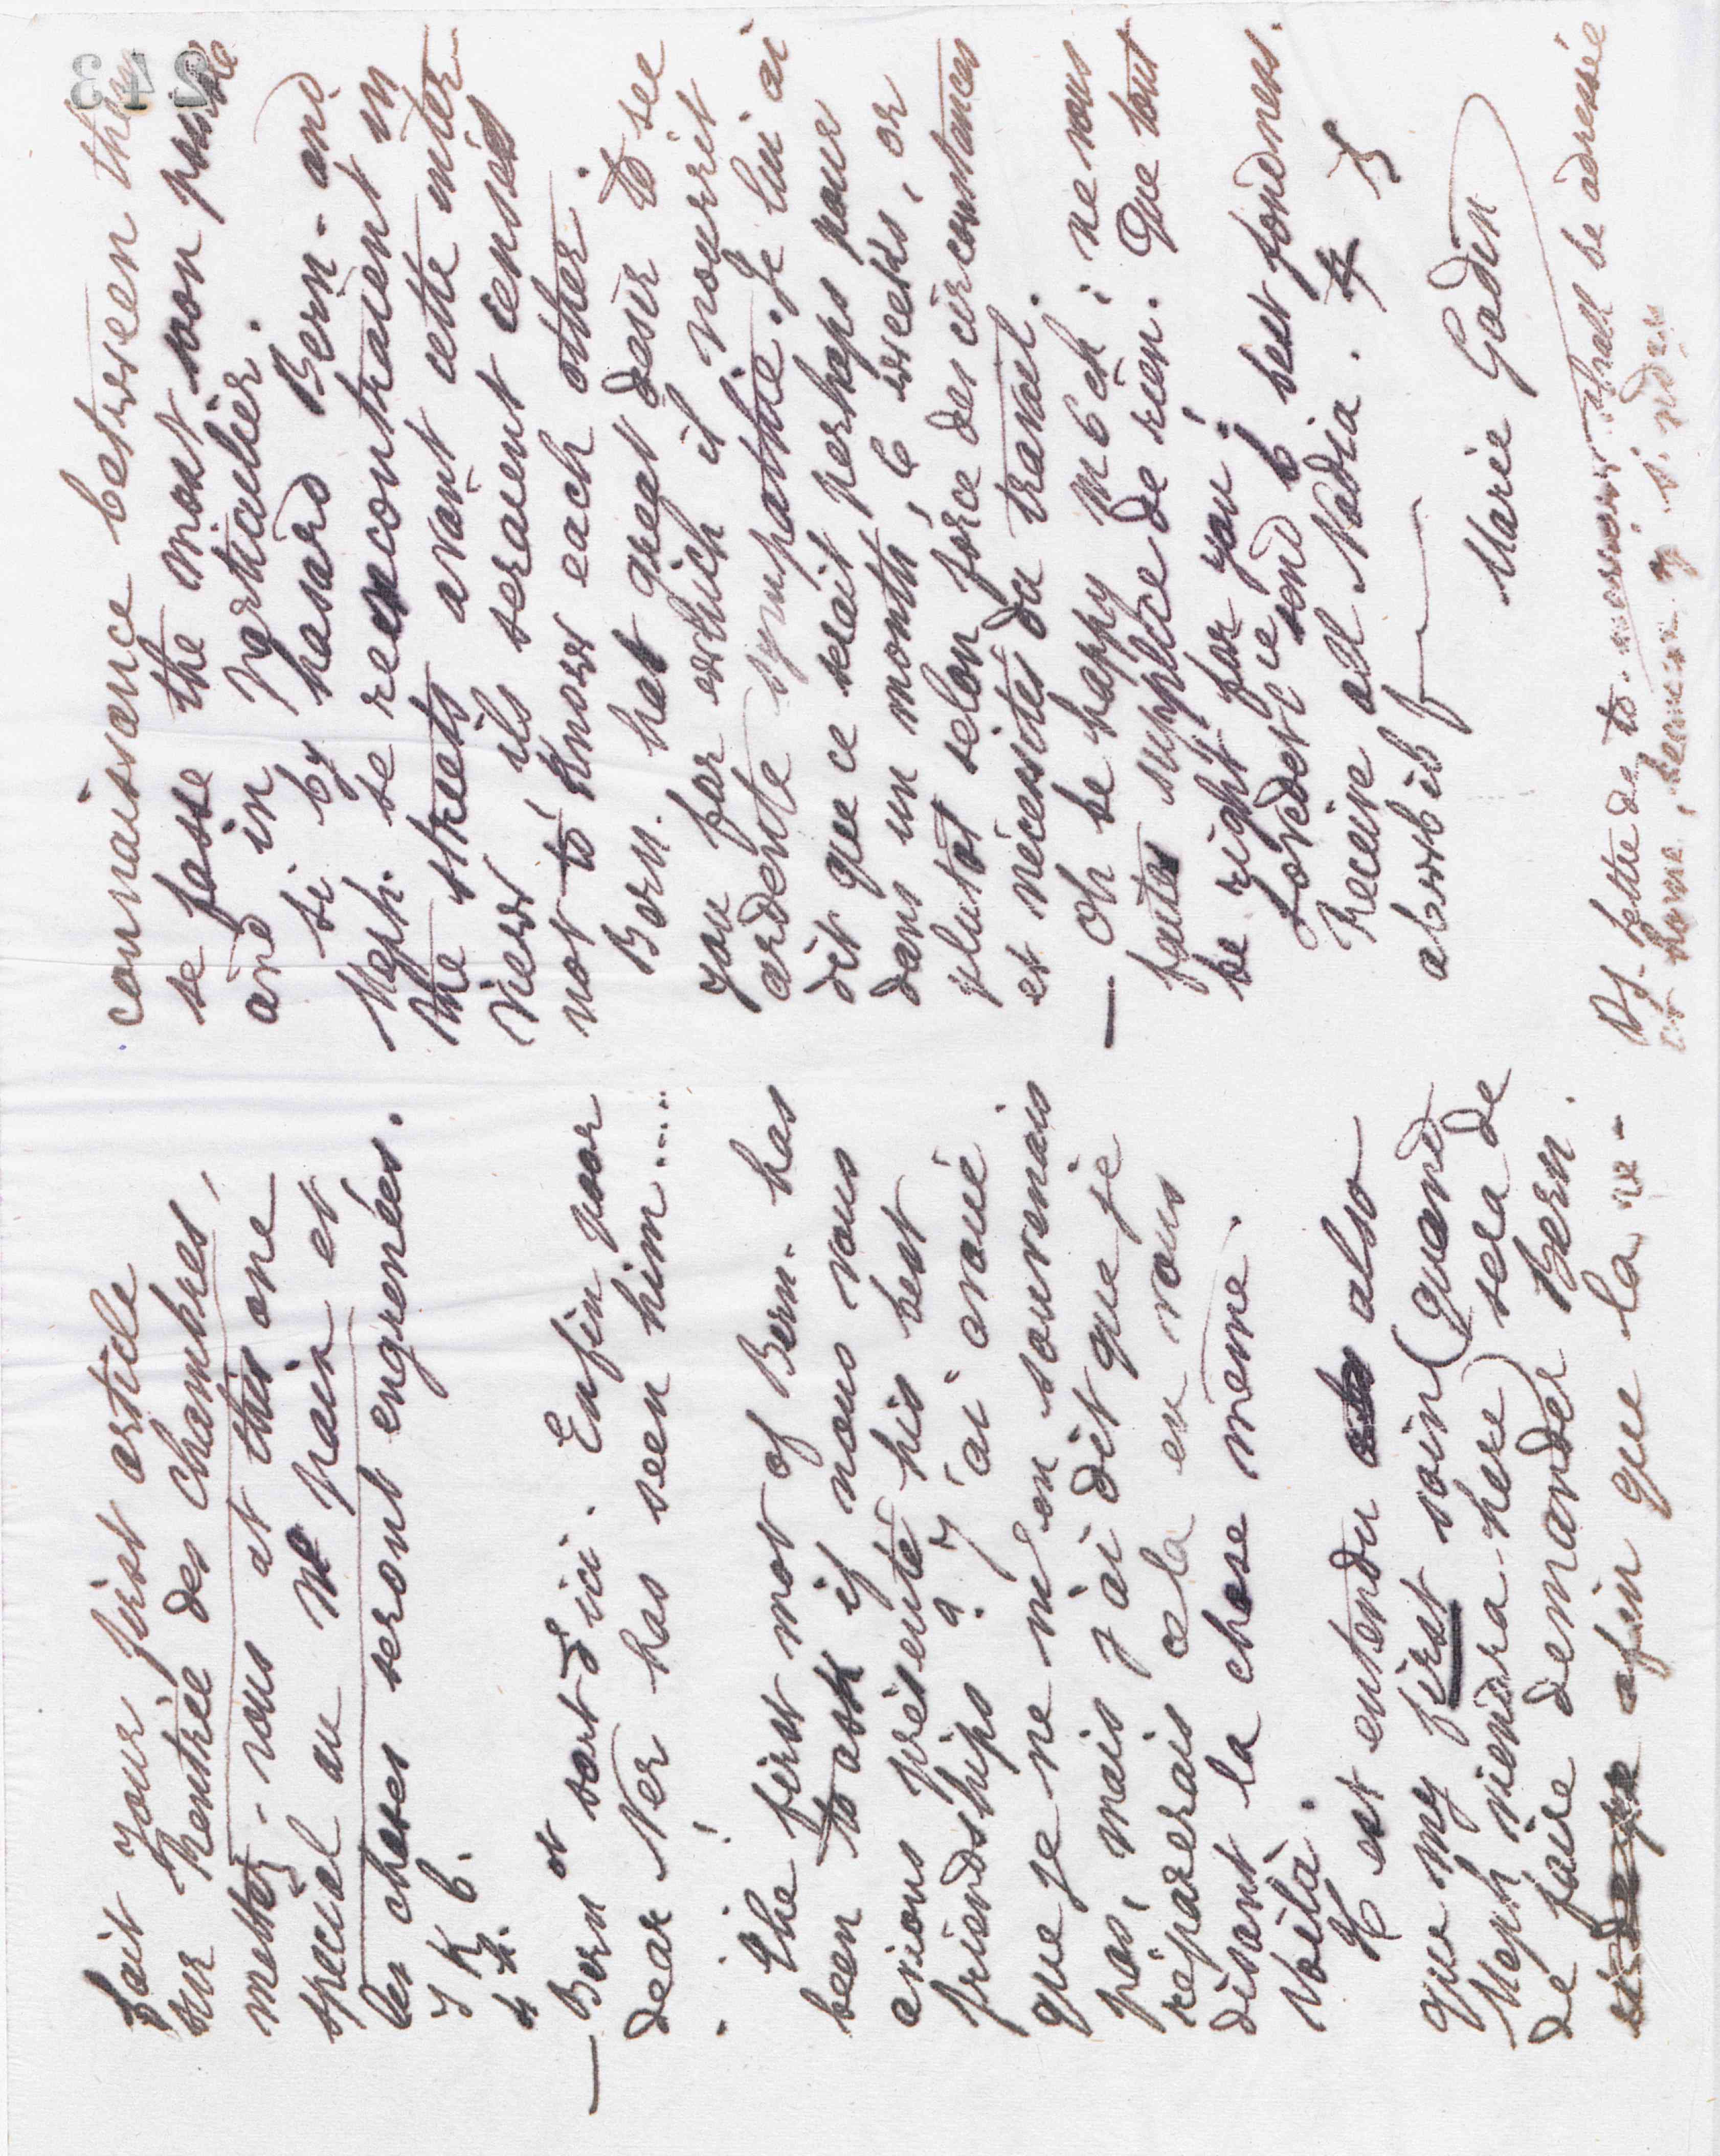 fait your first article
sur Rentrée des Chambres,
mettez-vous at this one
special au pain et
les choses seront engrenées.
— Bern sort d'ici. Enfin poor
dear Ner has seen him....
. . !
The first mot of Bern. has
been to ask if nous vous
avions présenté his best
friendships ? J'ai avoué
que je ne m'en souvenais
pas, mais j'ai dit que je
réparerais cela en vous
disant la chose même.
Voilà.
Il est entendu also
que my first soin (quand
Meph viendra here) sera de
de faire demander Bern.
afin que la re-
connaissance between them
se fasse the most soon
and in particulier.
si by hasard Bern- and
Meph. se rencontraient in
the streets avant cette inter-
view, ils seraient censés
not to know each other.
Bern. has great desir to see
you for which it nourrit
ardente sympathie. Je lui ai
dit que ce serait perhaps pour
dans un month, 6 weeks, or
plutot selon force des circonstances
et nécessités du travail.
— Oh be happy m 6 ch ; ne vous
faites supplice de rien. Que tout
be right for you !
Lovedet ie send 6 seet fondness.
Receive all Nadia.
alowbib
Marie Godin
243